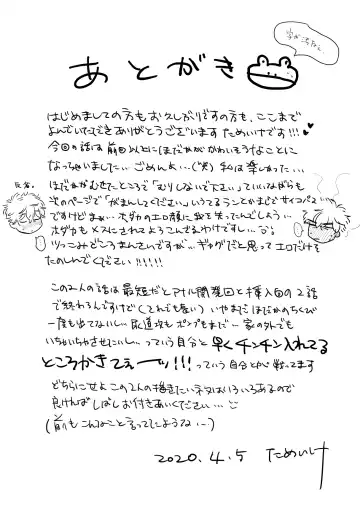 字がきたない
あとがき
はじめましての方もお久しぶりですの方も、ここまで
よんでいただきありがとうございます ためいけです!!!♥
今回の話は前回以上にほだかがかわいそうなことに
なっちゃいました…ごめんよ…(笑) 私は楽しかった…
ほだかがむせたところで「むりしないで下さい」っていいながらも
次のページで「がまんしてください」いうてるうんとかまじでサイコパス
ですけどまぁ… ホダカのエロ顔に我を失ってたんでしょう…
ホダカもメスにされてようこんでるわけですし…
ツッコみどころまんさいですが…ギャグだと思ってエロだけを
たのしんでください!!!!!
この2人の話は最短だとアナル開発回と挿入回の2話
で終わるんですけど(それでも長い) いやまだほだかのちくび
一度も出てないし… 尿道攻もポンプもまだ… 家の外でも
いちゃいちゃさせたいし…。って自分と早くチンチン入れてる
ところかきてぇーッ!!!っていう自分とが戦ってます
どちらにせよこの2人の描きたいネタはいろいろあるので
良ければしばしお付きあいください…
(前もこんなこと言ってたような…)
2020.4.5 ためいけ